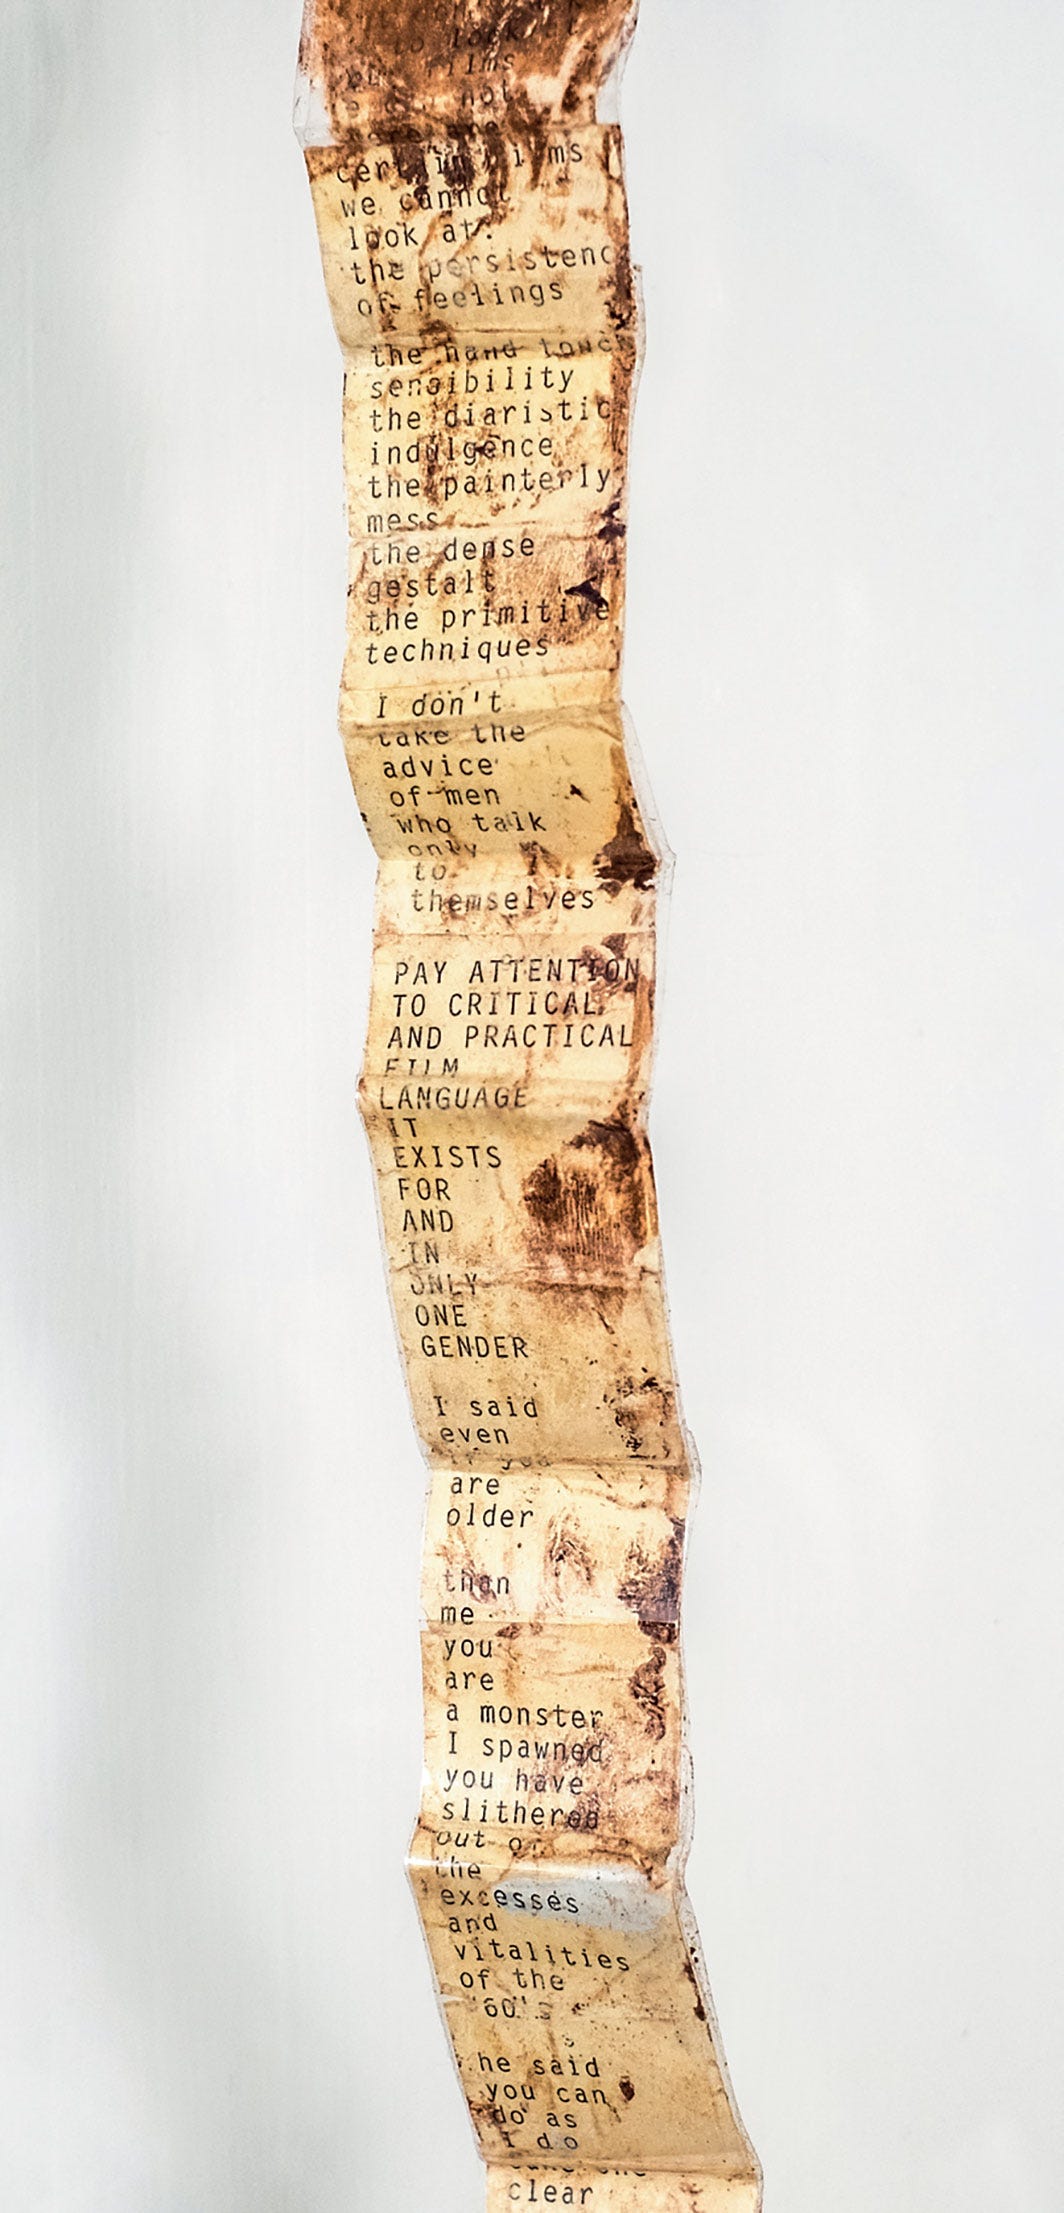 to look at
films
not
there are
certain films
we cannot
look at:
the persistenc
of feelings
the hand touch
sensibility
the diaristic
indulgence
the painterly
mess
the dense
gestalt
the primitive
techniques
I don't
take the
advice
of men
who talk
only
to
themselves
PAY ATTENTION
TO CRITICAL
AND PRACTICAL
FILM
LANGUAGE
IT
EXISTS
FOR
AND
IN
ONLY
ONE
GENDER
I said
even
if you
are
older
than
me
you
are
a monster
I spawned
you have
slithered
out o
the
excesses
and
vitalities
of the
'60's
he said
you can
do as
I do
take the
clear